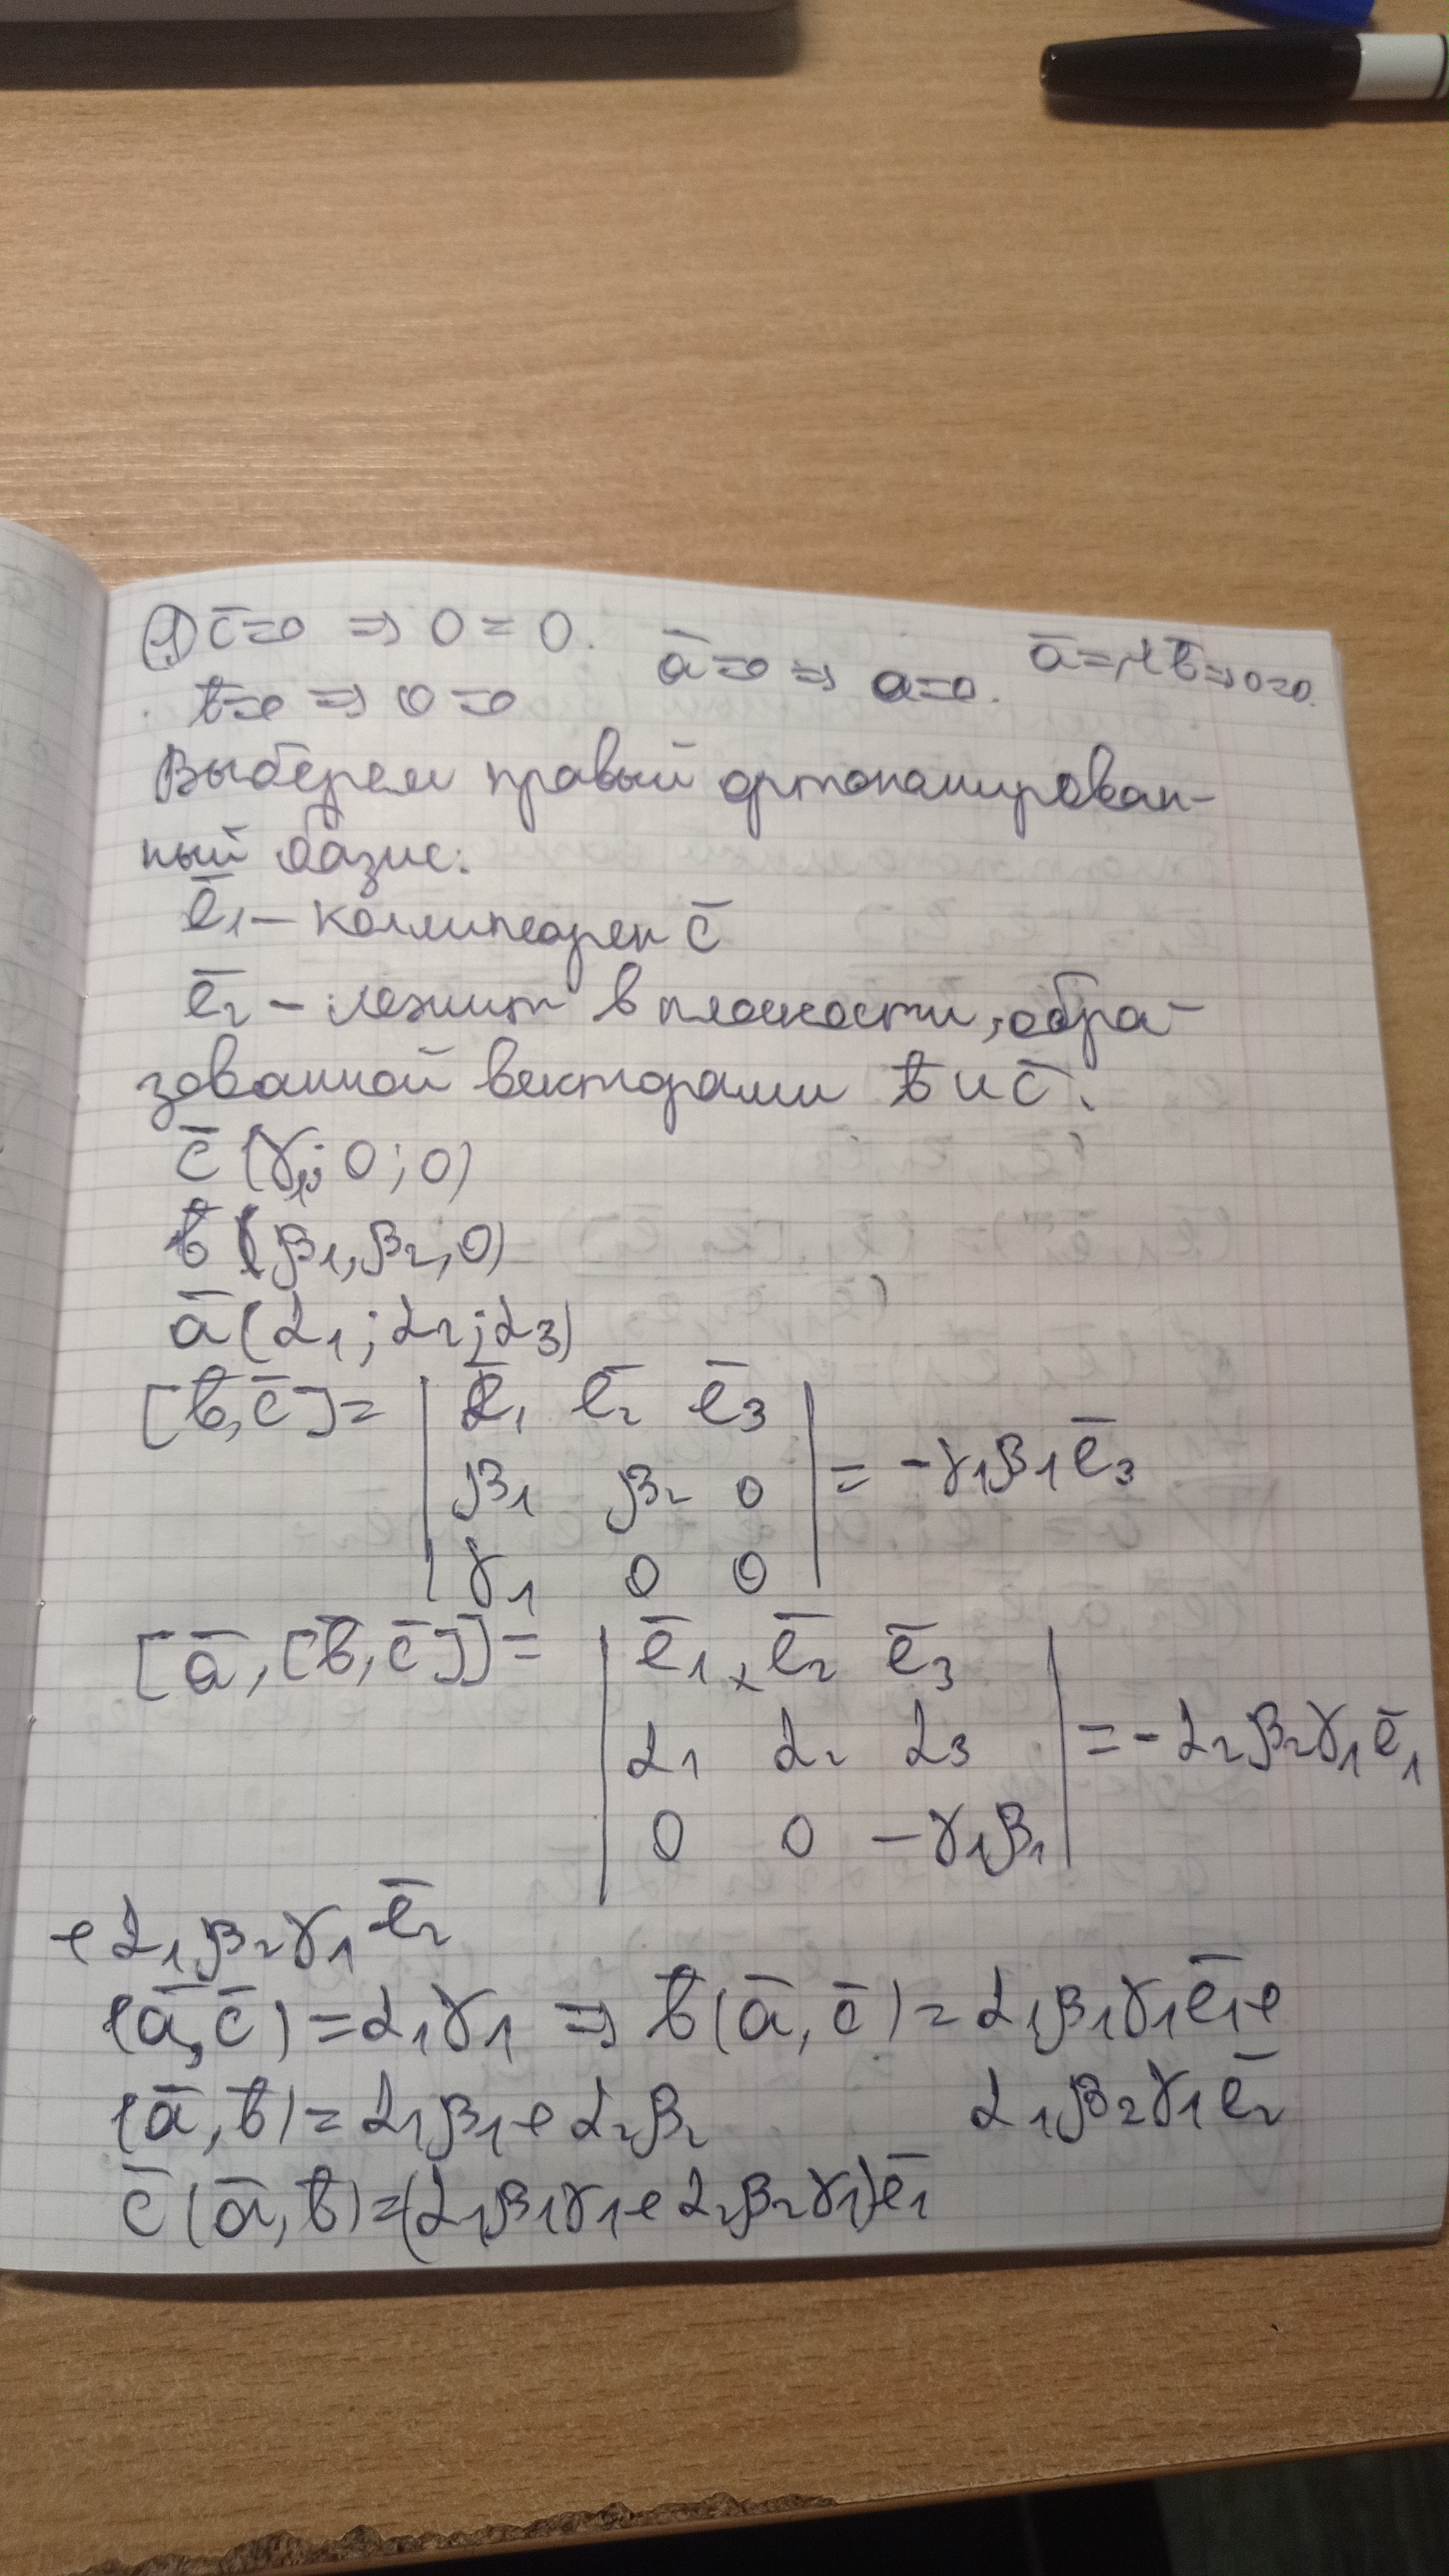 Д) c̄=0 ⇒ 0 = 0. ā=0 ⇒ 0=0. ā=μb̄⇒0=0.
b̄=0 ⇒ 0=0
Выберем правый ортонамирован-
ный базис:
ē₁ – коллинеарен c̄
ē₂ – лежит в плоскости, обра-
зованной векторами b̄ и c̄.
c̄ (γ₁; 0; 0)
b̄ (β₁, β₂, 0)
ā (α₁; α₂; α₃)
[b̄, c̄] = | ē₁ ē₂ ē₃ |
| β₁ β₂ 0 | = -γ₁β₁ē₃
| γ₁ 0 0 |
[ā, [b̄, c̄]] = | ē₁ ē₂ ē₃ |
| α₁ α₂ α₃ | = -α₂β₂γ₁ē₁
| 0 0 -γ₁β₁ |
+ α₁β₂γ₁ē₂
(ā, c̄) = α₁γ₁ ⇒ b̄(ā, c̄) = α₁β₁γ₁ē₁+
(ā, b̄) = α₁β₁ + α₂β₂ α₁β₂γ₁ē₂
c̄ (ā, b̄) = (α₁β₁γ₁ + α₂β₂γ₁)ē₁